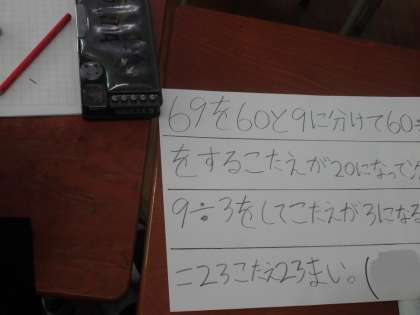 69を60と9に分けて60÷
をするこたえが20になって次
9÷3をしてこたえが3になる
=23こたえ23まい。(